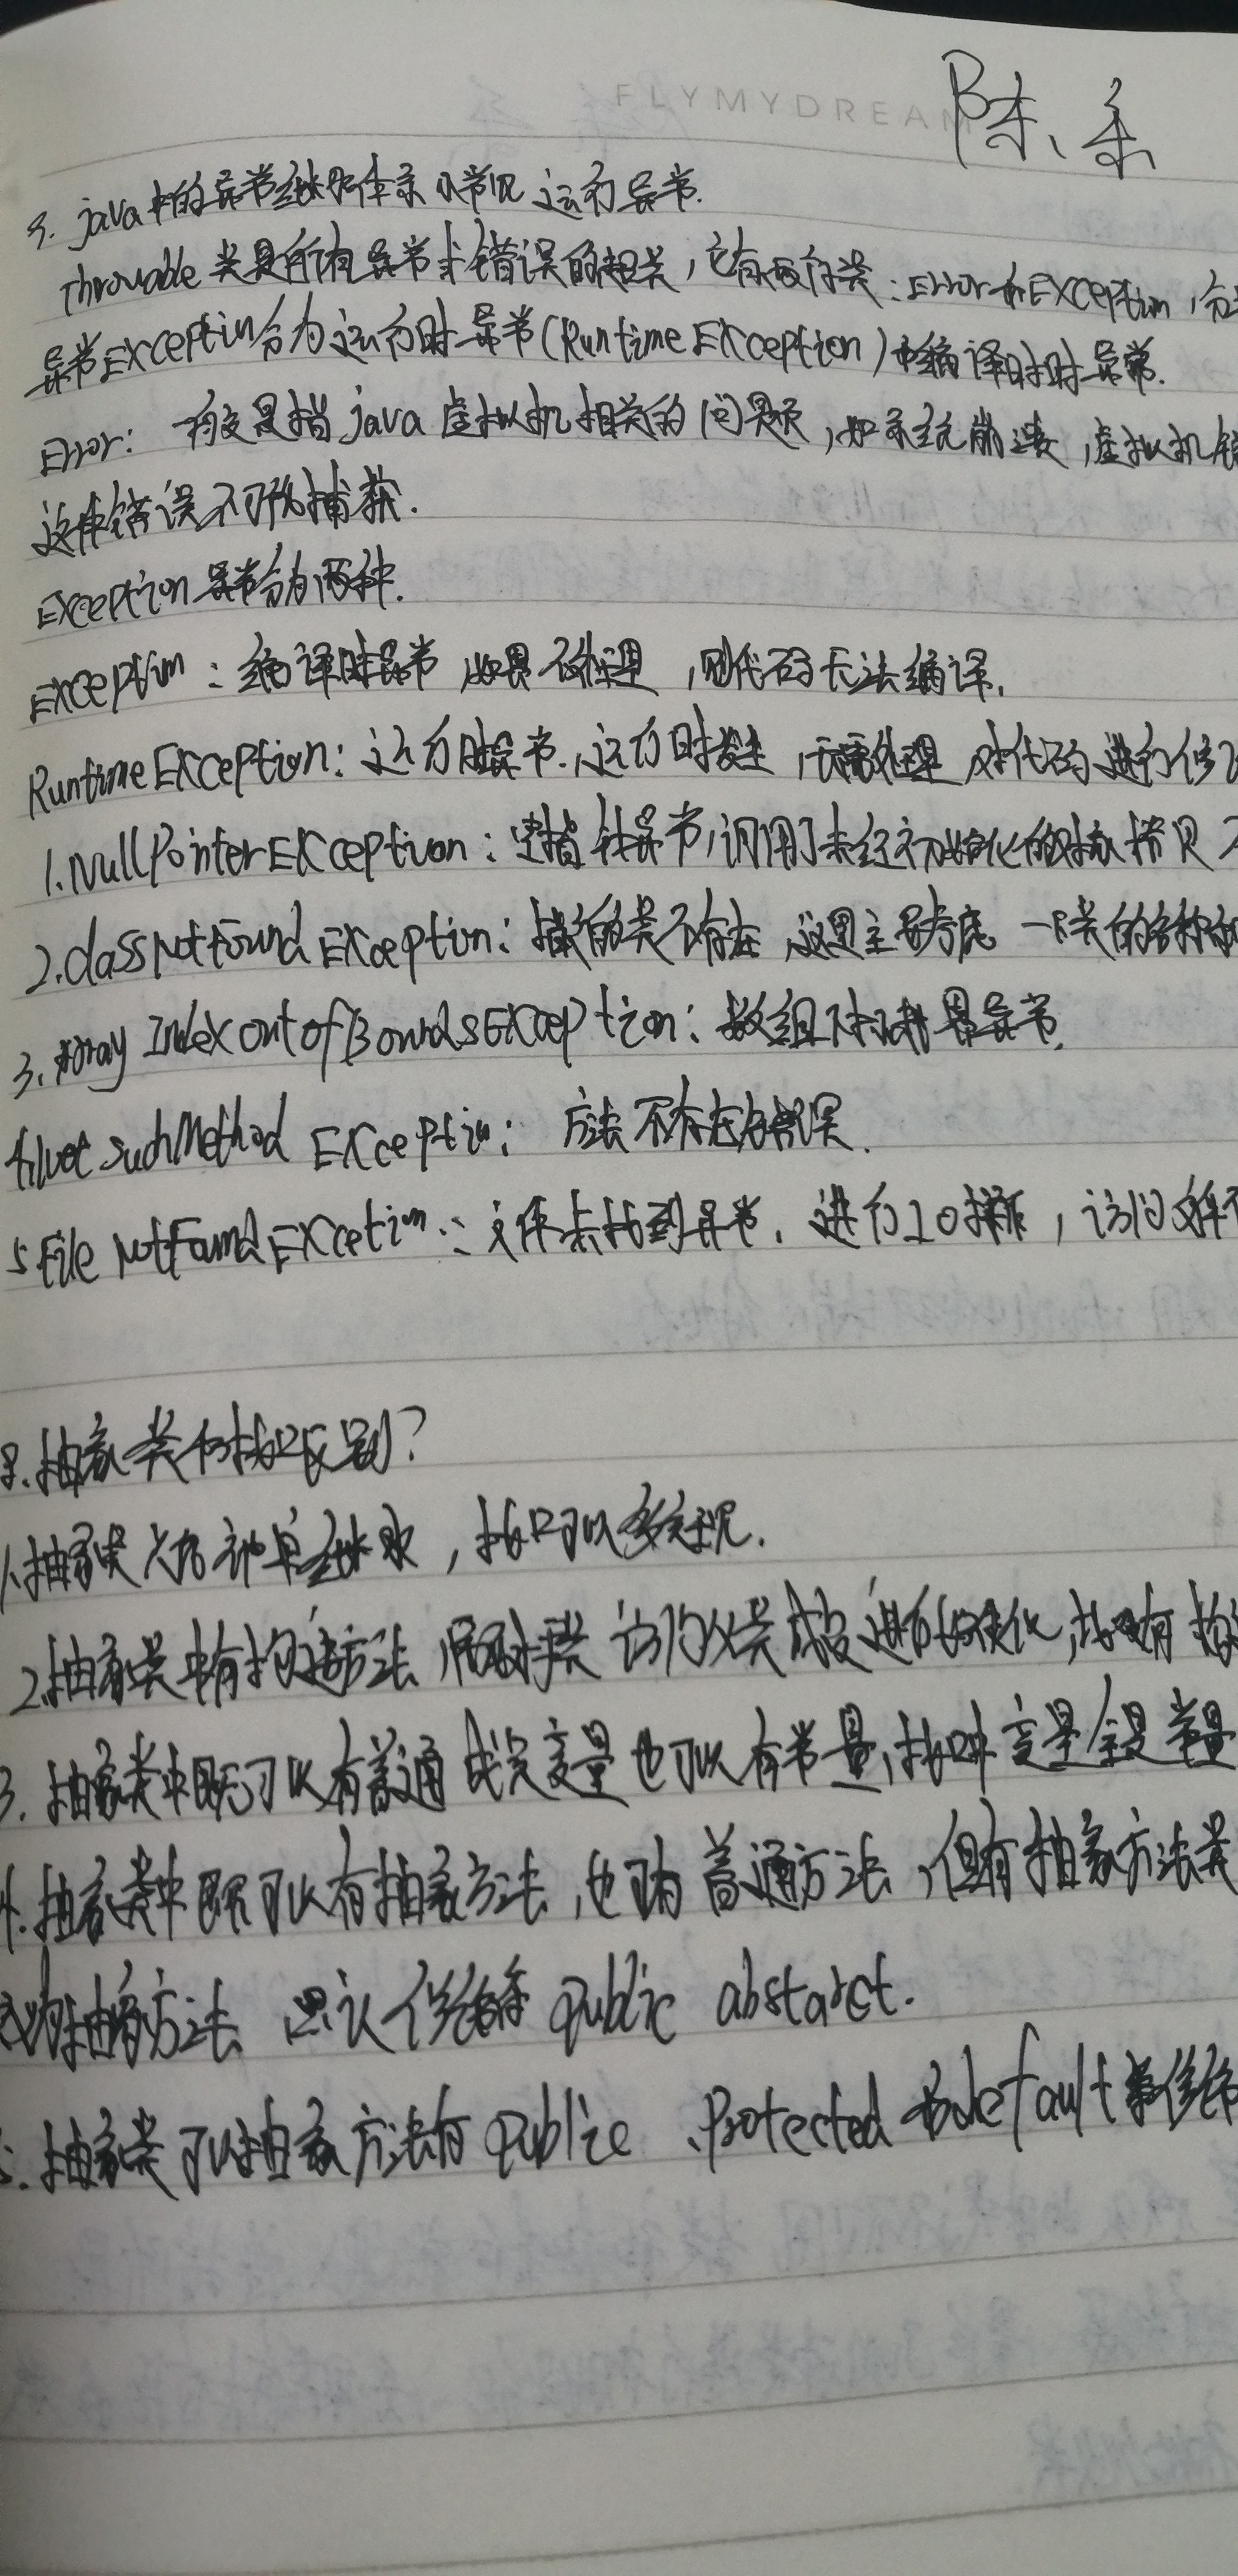 FLYMYDREAM
陈、余
java中的异常继承体系及常见运行异常.
Throwable 类是所有异常和错误的超类,它有两个子类:Error和Exception,分
异常Exception分为运行时异常(Runtime Exception)和编译时异常.
Error: 一般是指java虚拟机相关的问题,如系统崩溃,虚拟机错
这种错误不可捕获.
Exception异常分为两种.
Exception:编译时异常 如果不处理,则代码无法编译.
Runtime Exception:运行时异常.运行时发生,无需处理,对代码进行修
1.NullPointerException:空指针异常,调用了未经初始化的对象
2.classNotFoundException:的类不存在 这里主要考虑一下类的名称和
3.Array Index out of Bounds Exception:数组下标越界异常.
such Method Exception: 方法不存在错误.
5 File NotFound Exception:文件未找到异常.进行IO操作,访问文件不
8.抽象类和接口区别?
1.抽象类只能单继承,接口可以多实现.
2.抽象类中有构造方法,用于子类访问父类成员进行初始化,接口没有构造
3.抽象类中既可以有普通成员变量也可以有常量,接口中变量全是常量
4.抽象类中既可以有抽象方法,也可有普通方法,但有抽象方法类
抽象方法 默认修饰符 public abstarct.
5.抽象类可以抽象方法有 public 、Protected 和default 修饰